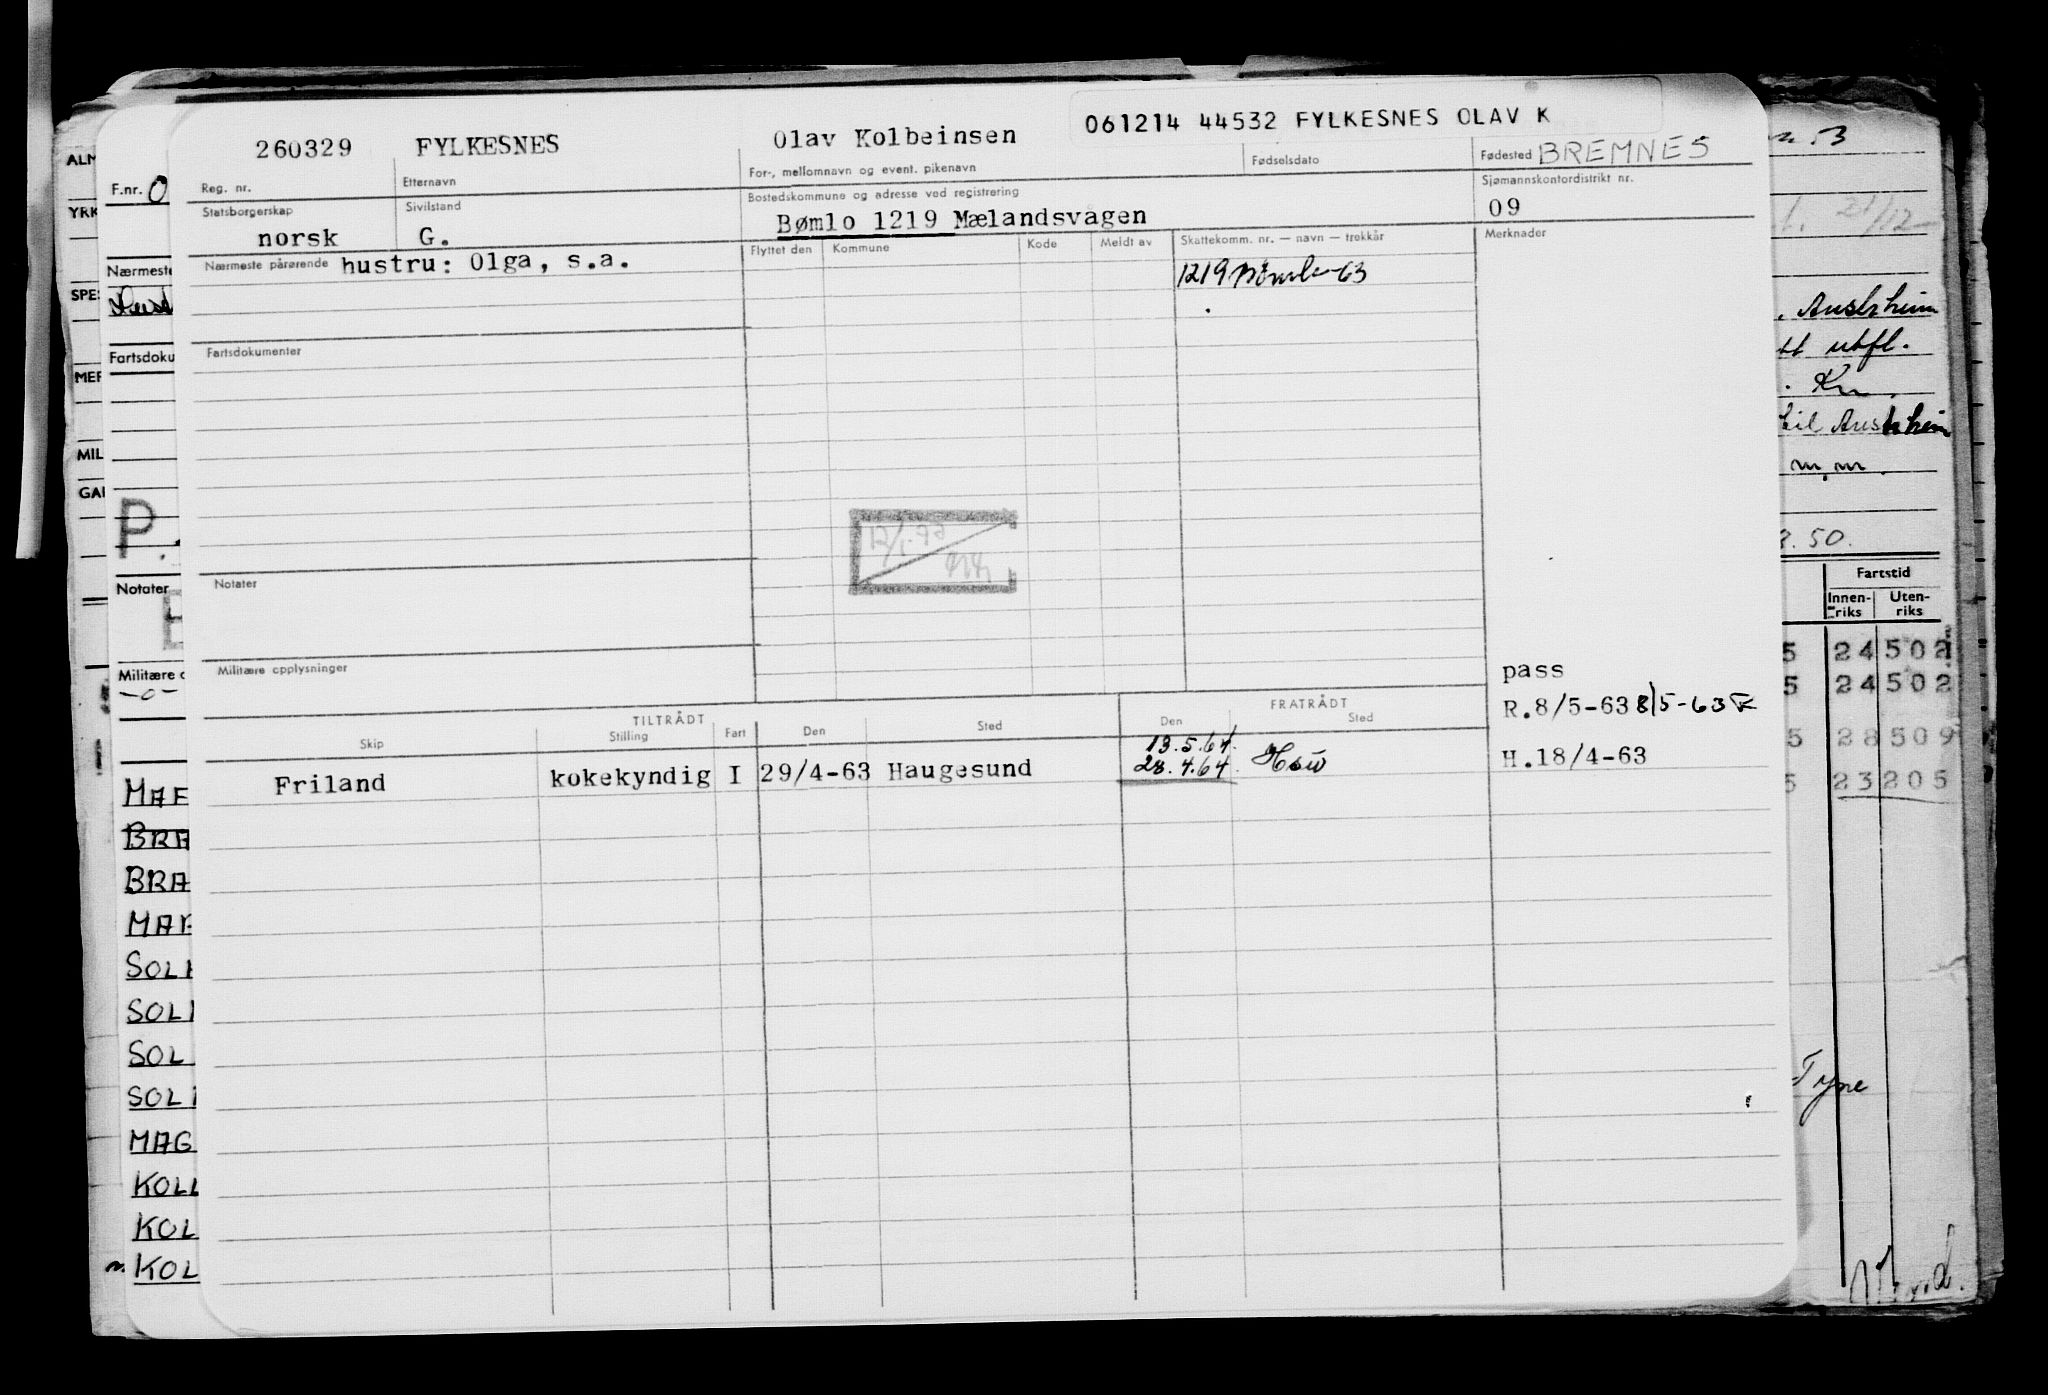 260329 FYLKESNES Olav Kolbeinsen 061214 44532 FYLKESNES OLAV K
Reg. nr. Etternavn For-, mellomnavn og event. pikenavn Fødselsdato Fødested BREMNES
Statsborgerskap Sivilstand Bostedskommune og adresse ved registrering Sjømannskontordistrikt nr.
norsk G. Bømlo 1219 Mælandsvågen 09
Nærmeste pårørende hustru: Olga, s.a. Flyttet den Kommune Kode Meldt av Skattekomm. nr. — navn — trekkår Merknader
1219 Bømlo-63
Fartsdokumenter
Notater
Militære opplysninger
pass
R.8/5-63 8/5-63
TILTRÅDT FRATRÅDT
Skip Stilling Fart Den Sted Den Sted
13.5.64.
Friland kokekyndig I 29/4-63 Haugesund 28.4.64. H.18/4-63
ALM
F.nr. 0
YRK
Nærmeste
SPE
Fartsdoku
MER
MIL
GAI
P.
Notater
Militære o
-0-
MAR
BRA
BRA
MAR
SOL
SOL
SOL
SOL
MAG
KOLL
KOL
KOL
53
21/12
, Austrheim
tt utfl.
. Kr.
til Austrheim
m.m.
.50.
Fartstid
Innen-riks Uten-riks
5 24 502
5 24 502
5 28 509
5 23 205
Tyne